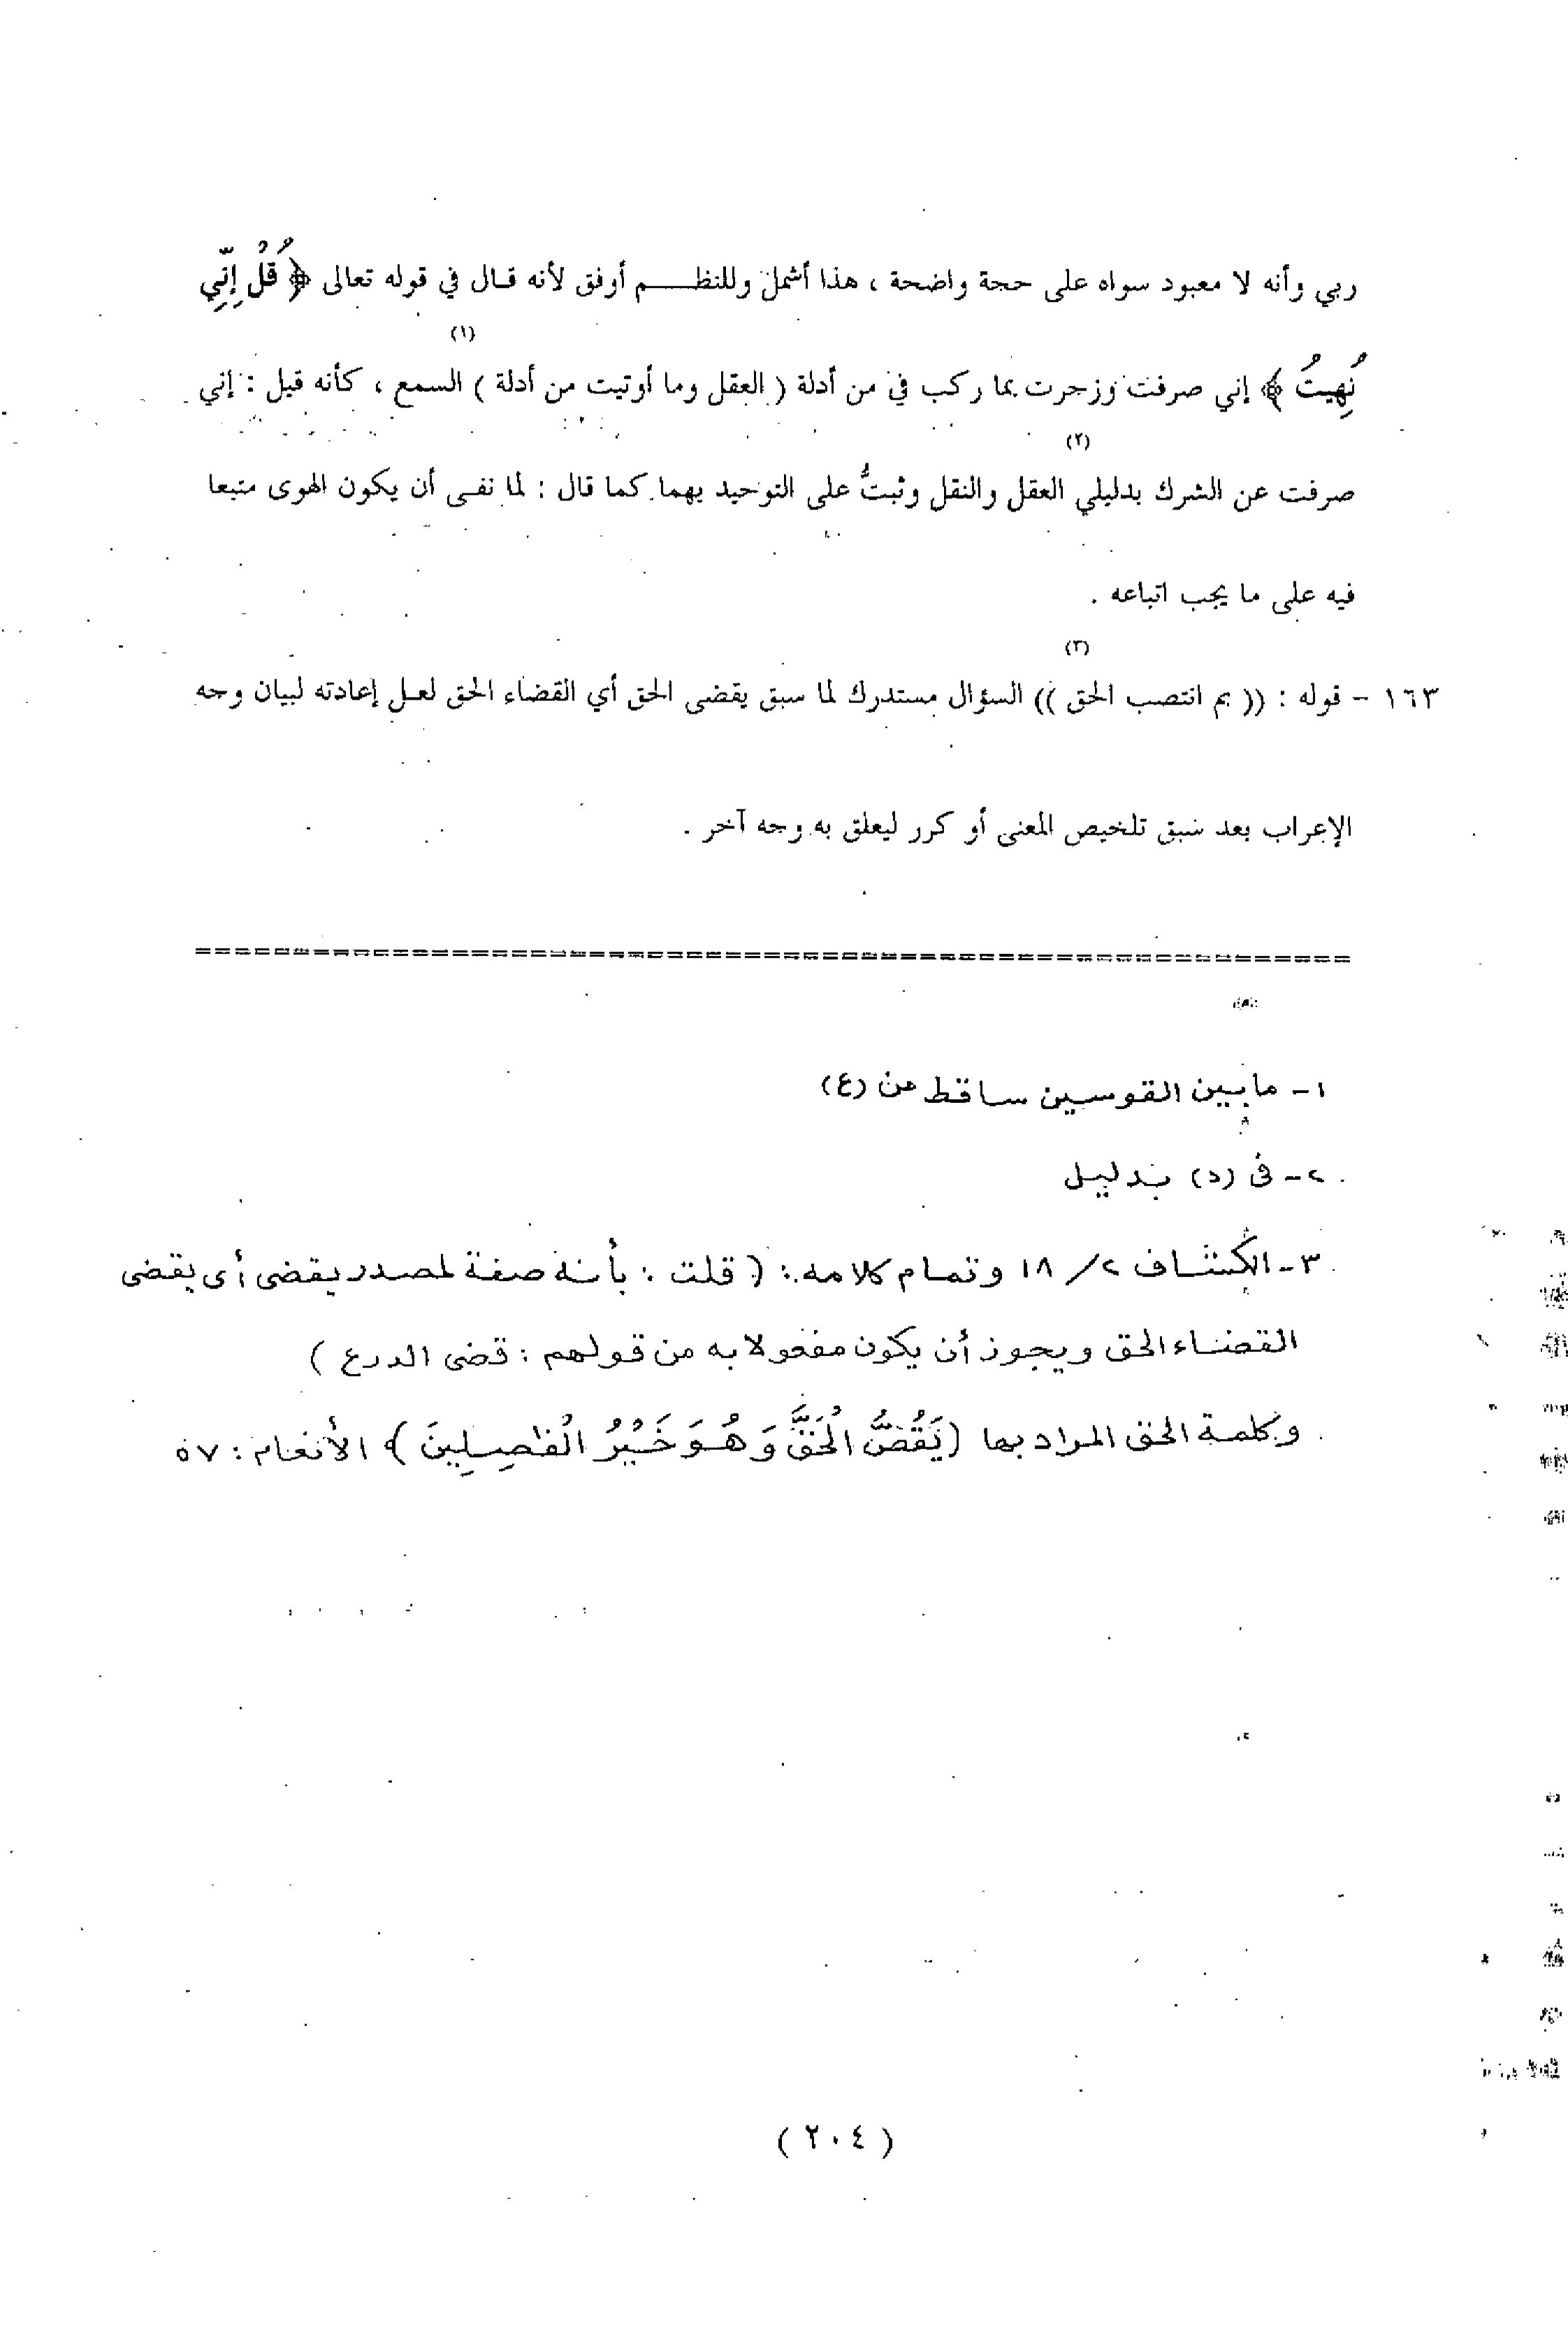 ربي وأنه لا معبود سواه على حجة واضحة ، هذا أشمل وللنظم أوفق لأنه قال في قوله تعالى ﴿ قُلْ إِنِّي
(١)
نُهِيتُ ﴾ إني صرفت وزجرت بما ركب فيّ من أدلة ( العقل وما أوتيت من أدلة ) السمع ، كأنه قيل : إني
(٢)
صرفت عن الشرك بدليلي العقل والنقل وثبتُّ على التوحيد بهما كما قال : لما نفى أن يكون الهوى متبعا
فيه على ما يجب اتباعه .
(٣)
١٦٣ - قوله : (( بم انتصب الحق )) السؤال مستدرك لما سبق يقضى الحق أي القضاء الحق لعل إعادته لبيان وجه
الإعراب بعد سبق تلخيص المعنى أو كرر ليعلق به وجه آخر .
==========================================================
١- مابين القوسين ساقط من (ع)
٢- فى (د) بدليل
٣- الكشاف ٢/ ١٨ وتمام كلامه : ( قلت : بأنه صفة لمصدر يقضى أى يقضى
القضاء الحق ويجوز أن يكون مفعولا به من قولهم : قضى الدرع )
وكلمة الحق المراد بها ( يَقُصُّ الْحَقَّ وَهُوَ خَيْرُ الْفَاصِلِينَ ﴾ الأنعام : ٥٧
( ٢٠٤ )